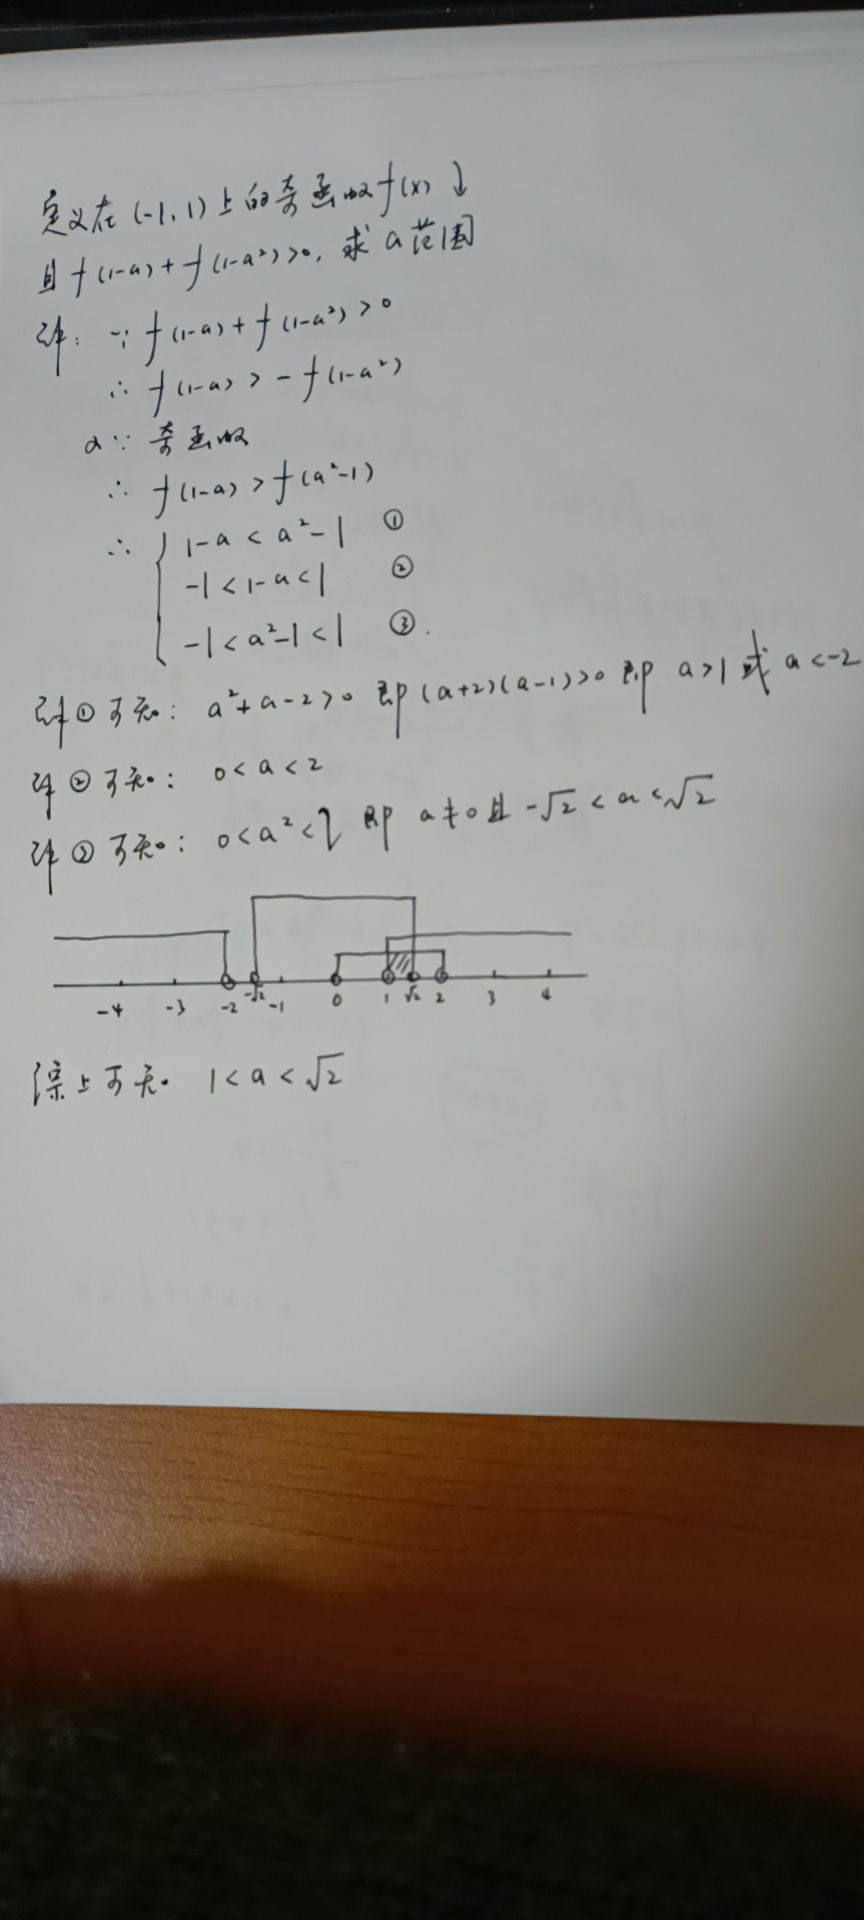 定义在(-1,1)上的奇函数f(x)↓
且f(1-a)+f(1-a²)>0,求a范围
解:∵f(1-a)+f(1-a²)>0
∴f(1-a)>-f(1-a²)
又∵奇函数
∴f(1-a)>f(a²-1)
∴{1-a<a²-1 ①
-1<1-a<1 ②
-1<a²-1<1 ③.
解①可知:a²+a-2>0即(a+2)(a-1)>0即a>1或a<-2
解②可知:0<a<2
解③可知:0<a²<2即a≠0且-√2<a<√2
-4 -3 -2 -√2 -1 0 1 √2 2 3 4
综上可知 1<a<√2